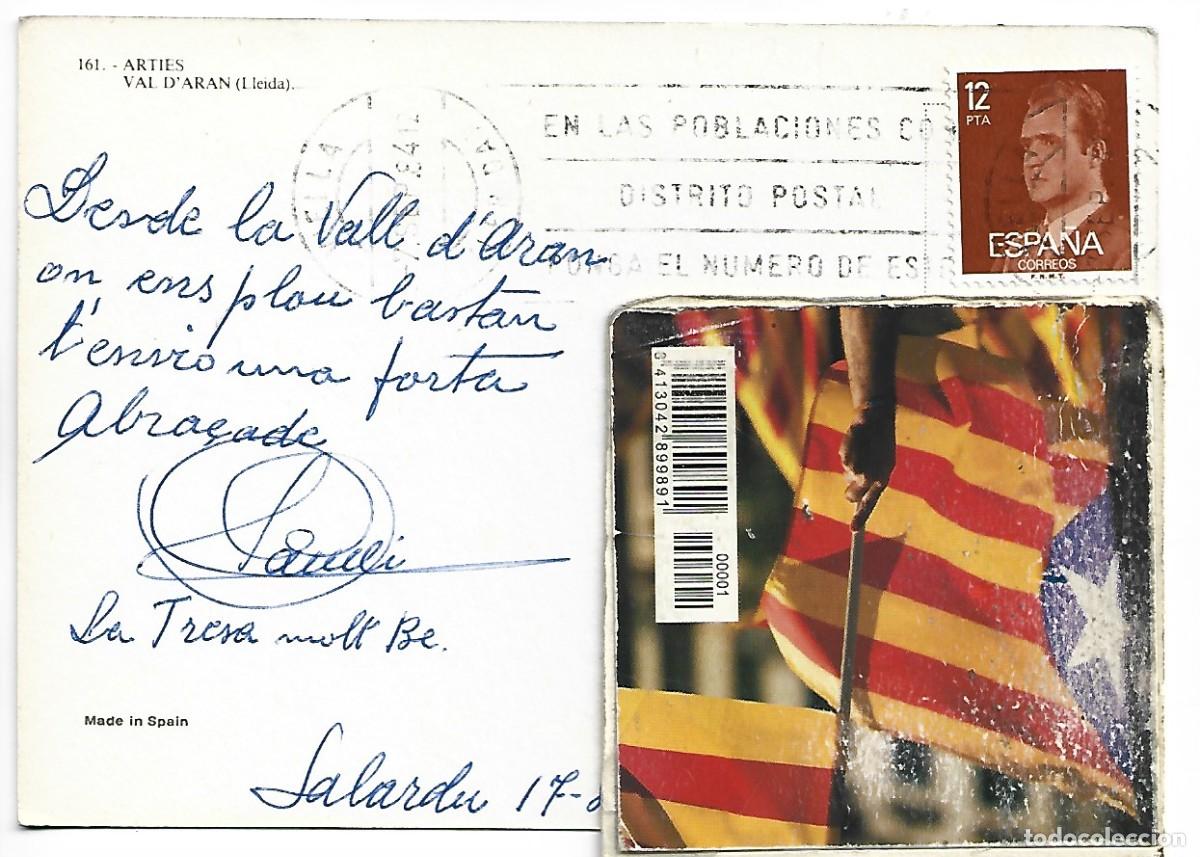 161. - ARTIES
VAL D'ARAN (Lleida).
EN LAS POBLACIONES CO
DISTRITO POSTAL
PONGA EL NUMERO DE ES
12
PTA
ESPAÑA
CORREOS
F.N.M.T.
Desde la Vall d'Aran
on ens plou bastan
t'envio una forta
Abraçade
La Tresa molt Be.
Made in Spain
Salardu 17-8
8 413042 899891
00001
todocoleccion